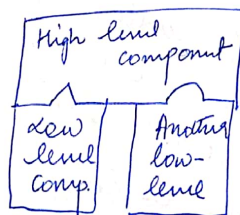 High level
component
Low
level
Comp.
Another
low-
level